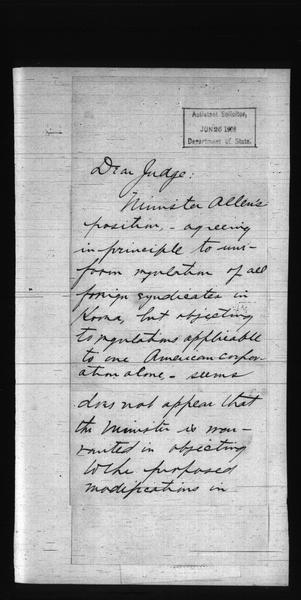 Assistant Solicitor,
JUN 26 1903
Department of State.
Dear Judge:
Minister Allen's
position, - agreeing
in principle to uni-
form regulation of all
foreign syndicates in
Korea, but objecting
to regulations applicable
to one American corpor-
ation alone - seems
does not appear that
the Minister is war-
ranted in objecting
to the proposed
modifications in